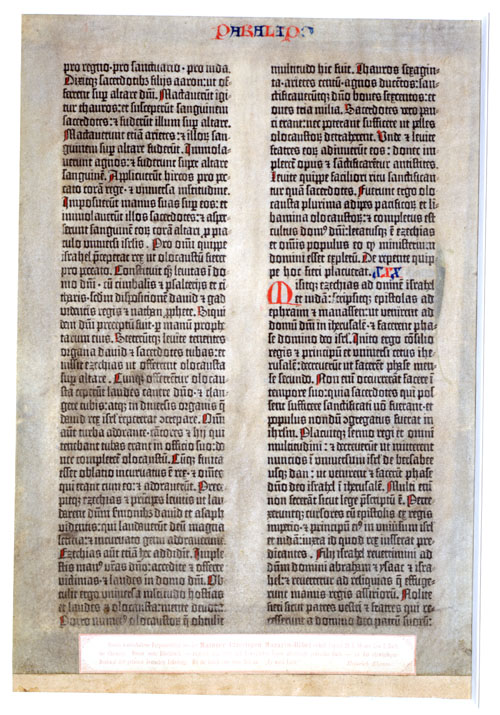 PARALIPO
pro regno·pro sanctuario·pro iuda.
Dixitqȝ sacerdotibȝ filijs aaron: ut of-
ferrent sup altare dñi. Mactauerūt igi-
tur thauros: et susceperūt sanguinem
sacerdotes: ⁊ fuderūt illum sup altare.
Mactauerunt etiā arietes: ⁊ illoꝝ san-
guinem sup altare fuderūt. Immola-
uerunt agnos: ⁊ fuderunt supe altare
sanguinē. Applicuerūt hircos pro pec-
cato corā rege· ⁊ uniuersa multitudine.
Imposuerunt manus suas sup eos: et
immolauerunt illos sacerdotes: ⁊ asper-
serunt sanguinē eoꝝ corā altari, p pia-
culo uniuersi israhelis. Pro oīni quippe
israhel pceperat rex ut olocaustū fieret
pro peccato. Constituit qȝ leuitas ī do-
mo dñi· cū cimbalis ⁊ psalterijs et ci-
tharis· scdm dispositionē dauid ⁊ gad
videntis regis ⁊ nathan, pphete. Siqui-
dem dñi preceptū fuit· p manū prophe-
tarum eius. Steterūtqȝ leuite tenentes
organa dauid ⁊ sacerdotes tubas: et
iussit ezechias ut offerrent olocausta
sup altare. Cunqȝ offerrētur olocau-
sta ceperūt laudes canere dño· ⁊ clan-
gere tubis: atqȝ in diuersis organis q̄
dauid rex isrl reppererat ɔcrepare. Omī
aūt turba adorante· cātores ⁊ hij qui
tenebant tubas erant in officio suo: do-
nec compleretur olocaustū. Cūqȝ finita
esset oblatio incuruatus ē rex· ⁊ omēs
qui erant cum eo: ⁊ adorauerūt. Prece-
pitqȝ ezechias ⁊ prīcipes leuitis ut lau-
darent dñm sermonibȝ dauid et asaph
videntis: qui laudauerūt deū magna
leticia: ⁊ incuruato genu adorauerūt.
Ezechias aūt etiā hec addidit. Imple-
stis manꝰ vr̄as dño: accedite ⁊ offerte
victimas· ⁊ laudes in domo dñi. Ob-
tulit ergo uniuersa multitudo hostias
et laudes ⁊ olocausta: mente deuota.
Porro numerꝰ olocaustoꝝ q̄ obtulit
multitudo hic fuit. Thauros septuagin-
ta· arietes centū· agnos ducētos: san-
ctificauerūtqȝ dño boues sexcentos: et
oues tria milia. Sacerdotes vero pau-
ci erant: nec poterant sufficere ut pelles
olocaustoꝝ detraherent. Unde ⁊ leuite
fratres eoꝝ adiuuerūt eos: donec im-
pleret opus ⁊ sāctificarētur antistites.
Leuite quippe faciliori ritu sanctifican-
tur quā sacerdotes. Fuerunt ergo olo-
causta plurima adipes pacificoꝝ et li-
bamina olocaustoꝝ: ⁊ completus est
cultus domꝰ dñi: letatusqȝ ē ezechias
et omīs populus eo qȝ ministeriū
domini esset expletū. De repente quip-
pe hoc fieri placuerat. XXX
Misitqȝ ezechias ad omnē israhel
et iudā: scripsitqȝ epistolas ad
ephraim ⁊ manassen: ut venirent ad
domū dñi in iherusalē· ⁊ facerent pha-
se domino deo isrl. Inito ergo cōsilio
regis ⁊ principū et uniuersi cetus ihe-
rusalē: decreuerūt ut facerēt phase men-
se secundo. Non enī occurrerāt facere ī
tempore suo: quia sacerdotes qui pos-
sent sufficere sanctificati nō fuerant· et
populus nondū ɔgregatus fuerat in
ihrlm. Placuitqȝ sermo regi et omni
multitudini: ⁊ decreuerūt ut mitterent
nuncios ī uniuersum isrl de bersabee
usqȝ dan: ut venirent ⁊ facerēt phase
dño deo israhel ī iherusalē. Multi enī
non fecerāt sicut lege pscriptū ē. Perre-
xeruntqȝ cursores cū epistolis ex regis
imperio· ⁊ principū eiꝰ in uniūsum isrl
et iudā: iuxta id quod rex iusserat pre-
dicantes. Filij israhel reuertimini ad
dñm deum abraham ⁊ ysaac ⁊ isra-
hel: ⁊ reuertetur ad reliquias q̄ effuge-
runt manus regis assirioꝝ. Nolite
fieri sicut patres vestri ⁊ fratres qui re-
cesserunt a domino deo patrū suoꝝ: